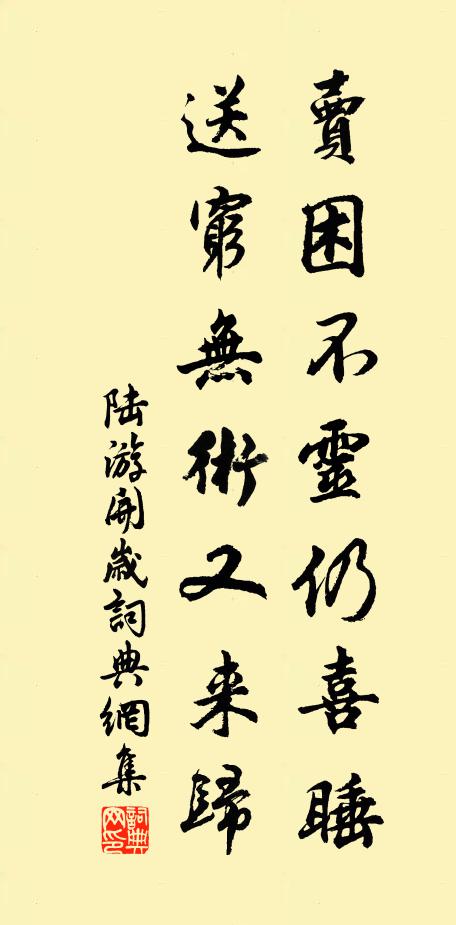 賣困不靈仍喜睡
送窮無術又来歸
陆游開歲詞典網集
詞典网印